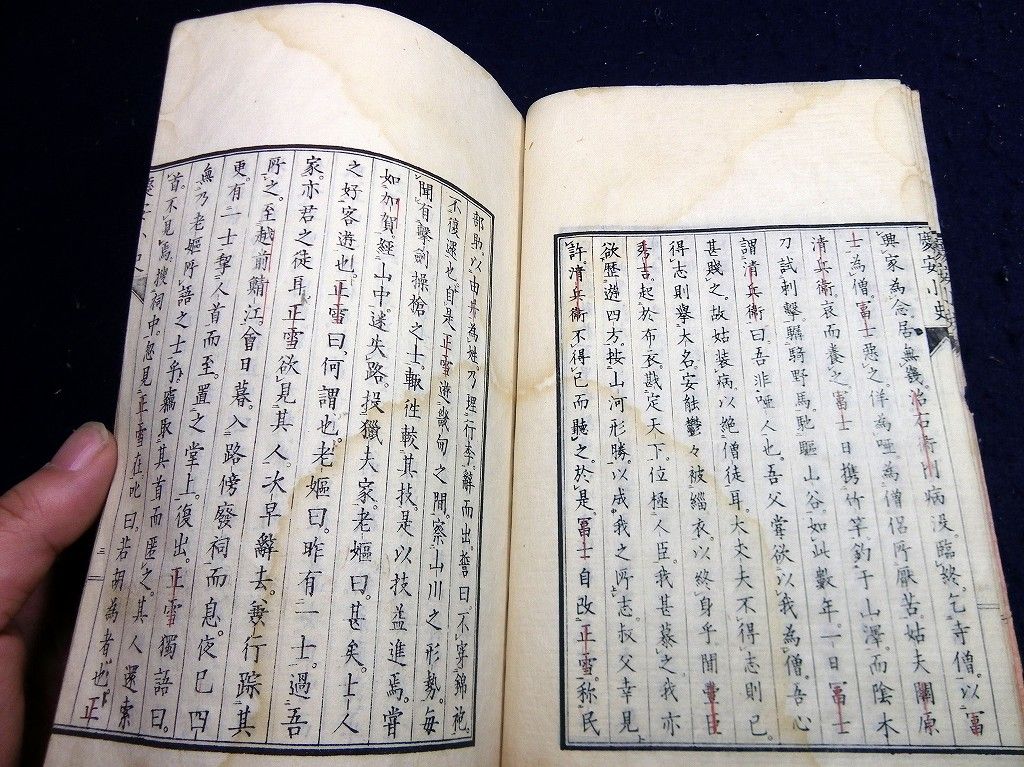 慶安小史
興家為念。居無幾。治右衛門病没。臨終。乞寺僧。以富
士為僧。富士惡之。佯為啞。為僧侶所厭苦。姑夫關原
清兵衛。哀而養之。富士日携竹竿。釣于山澤。而陰木
刀試刺擊。驏騎野馬。馳驅山谷。如此數年。一日富士
謂清兵衛曰。吾非啞人也。吾父嘗欲以我為僧。吾心
甚賤之。故姑裝病以絶僧徒耳。大丈夫不得志則已。
得志則擧大名。安能鬱々被緇衣。以終身乎。聞豐臣
秀吉。起於布衣。戡定天下。位極人臣。我甚慕之。我亦
欲歷遊四方。按山河形勝。以成我之所志。叔父幸見
許。清兵衛不得已而聽之。於是。富士自改正雪。稱民
部助。以由井為姓。乃理行李。辭而出。誓曰。不穿錦袍。
不復還也。自是正雪遊畿甸之間。察山川之形勢。每
聞有擊劍操槍之士。輙往較其技。是以技益進焉。嘗
如加賀。經山中。迷失路。投獵夫家。老嫗曰。甚矣。士人
之好客遊也。正雪曰。何謂也。老嫗曰。昨有一士。過吾
家。亦君之徒耳。正雪欲見其人。次早辭去。妻行踪其
所之。至越前鯖江。會日暮。入路傍廢祠而息。夜已四
更。有二士挈人首而至。置之堂上。復出。正雪獨語曰。
無乃老嫗所語之士乎。竊取其首而匿之。其人還索
首。不見焉。搜祠中。忽見正雪在。叱曰。若胡為者也。正